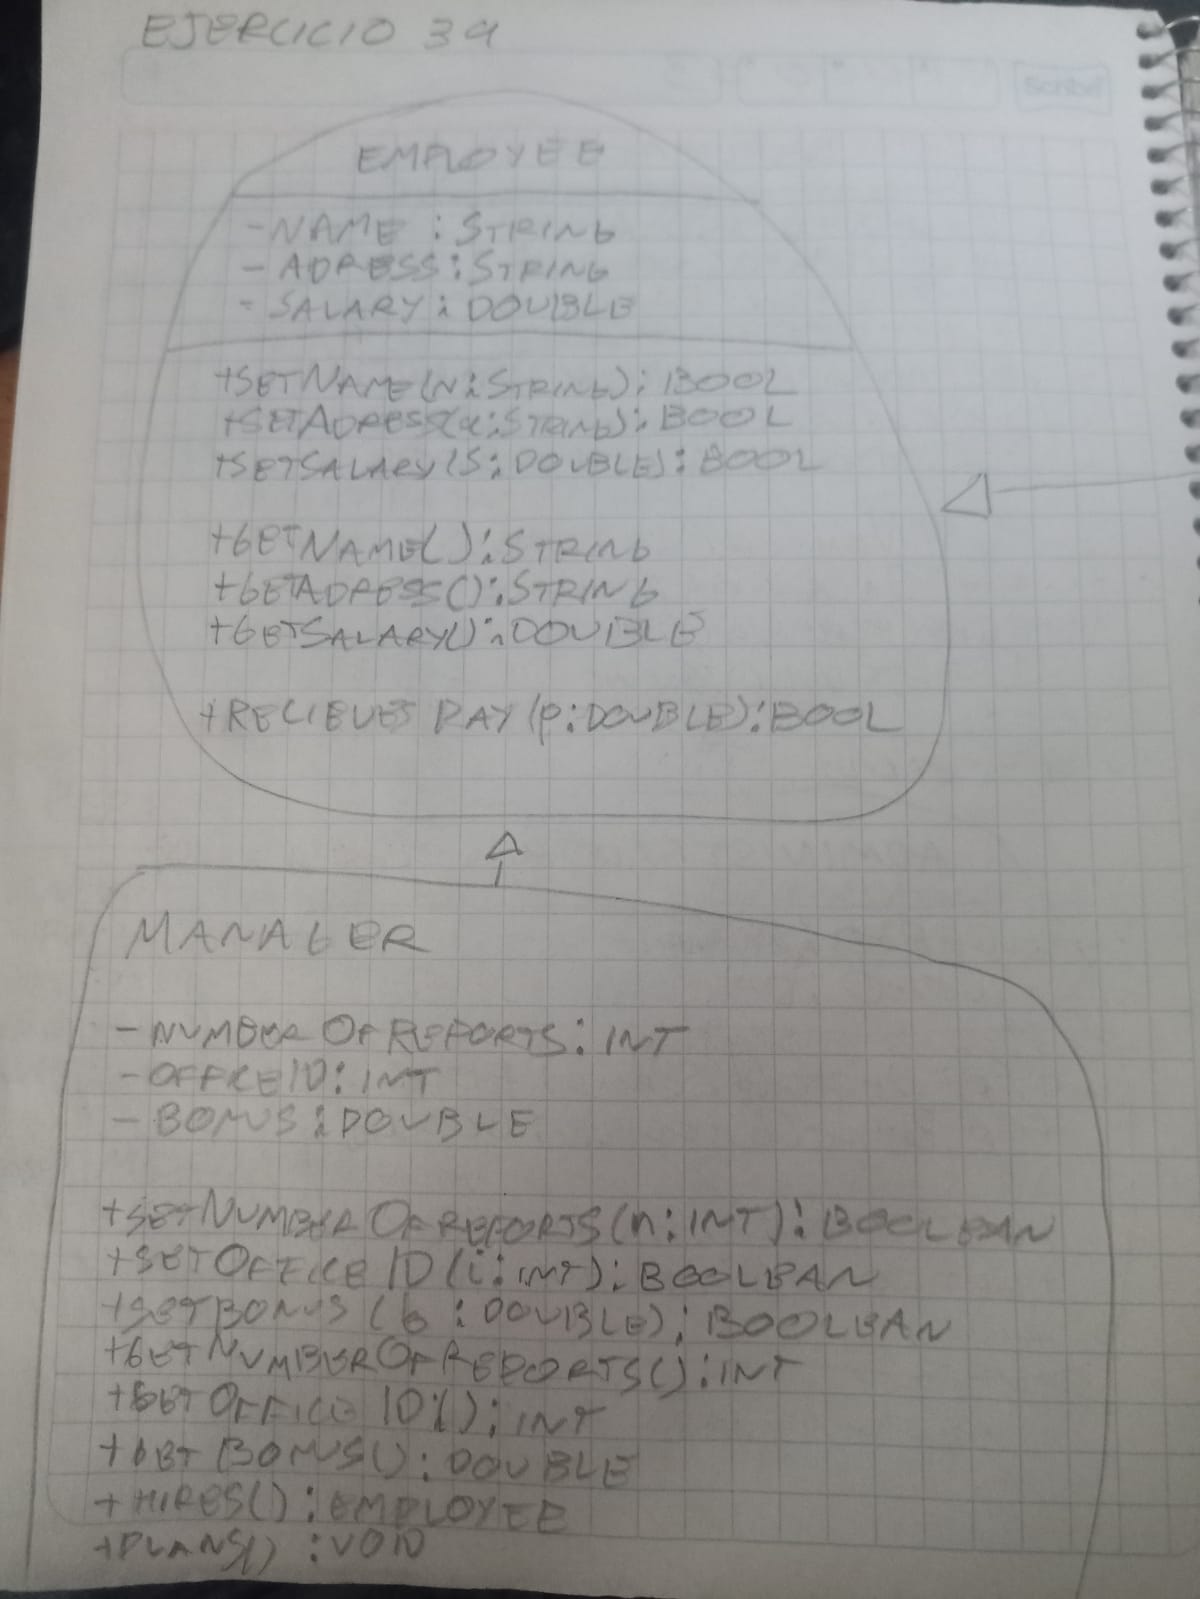 EJERCICIO 39
EMPLOYEE
- NAME : STRING
- ADRESS : STRING
- SALARY : DOUBLE
+SETNAME(N:STRING): BOOL
+SETADRESS(a:STRING): BOOL
+SETSALARY(S:DOUBLE): BOOL
+GETNAME():STRING
+GETADRESS():STRING
+GETSALARY():DOUBLE
+RECIEVES PAY (p:DOUBLE):BOOL
MANAGER
- NUMBER OF REPORTS: INT
- OFFICE ID: INT
- BONUS : DOUBLE
+SETNUMBER OF REPORTS(n:INT): BOOLEAN
+SET OFFICE ID (i:INT): BOOLEAN
+SETBONUS (b : DOUBLE): BOOLEAN
+GETNUMBEROFREPORTS():INT
+GET OFFICE ID(): INT
+GET BONUS(): DOUBLE
+HIRES(): EMPLOYEE
+PLANS() : VOID